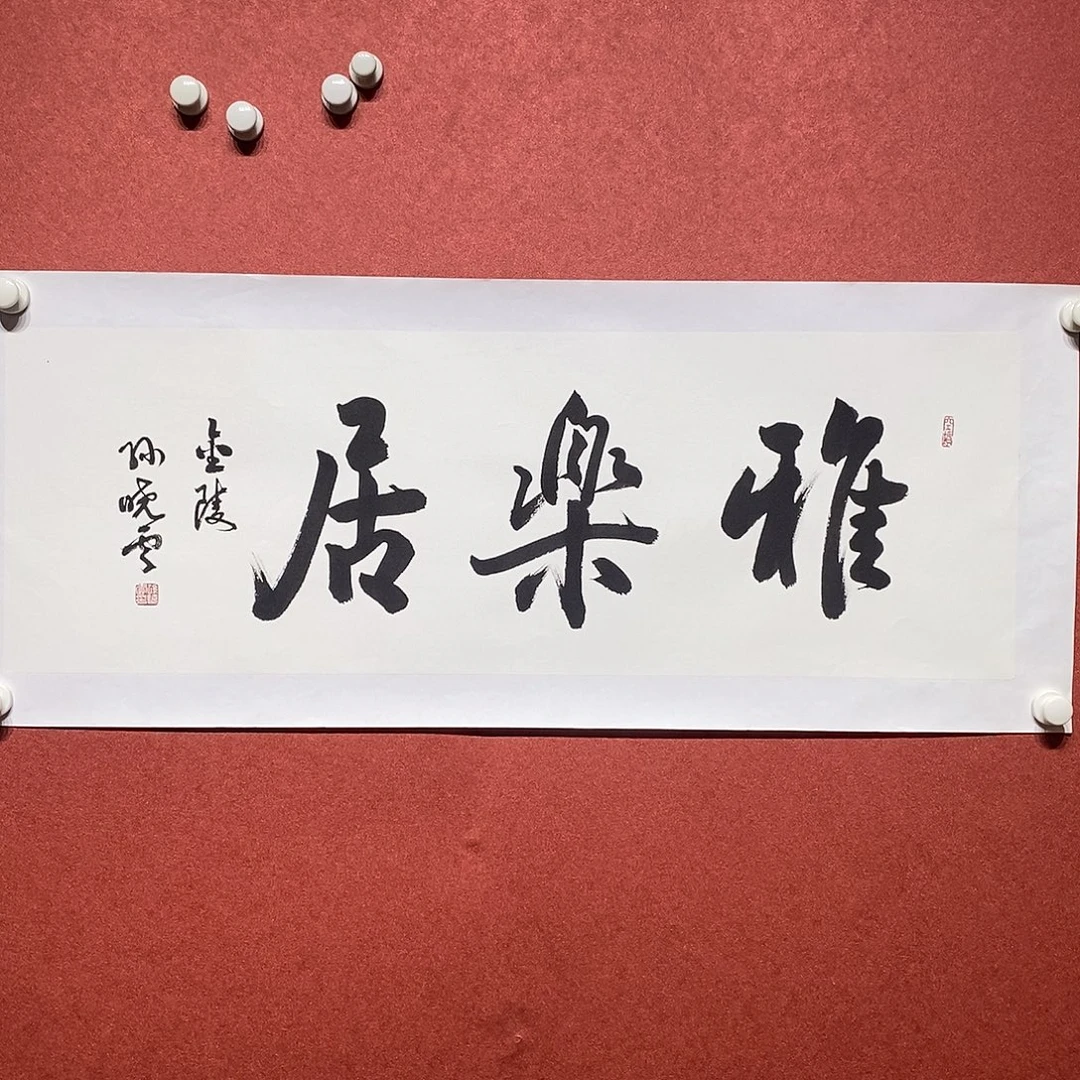 雅樂居
金陵
孙晓云